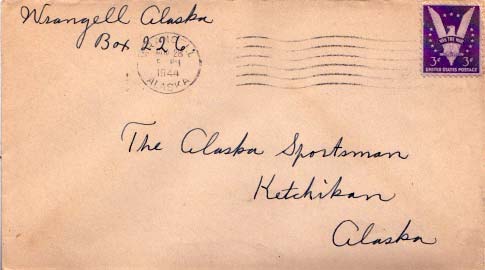 Wrangell Alaska
Box 226
1944
ALASKA
WIN THE WAR
3¢ 3¢
UNITED STATES POSTAGE
The Alaska Sportsman
Ketchikan
Alaska